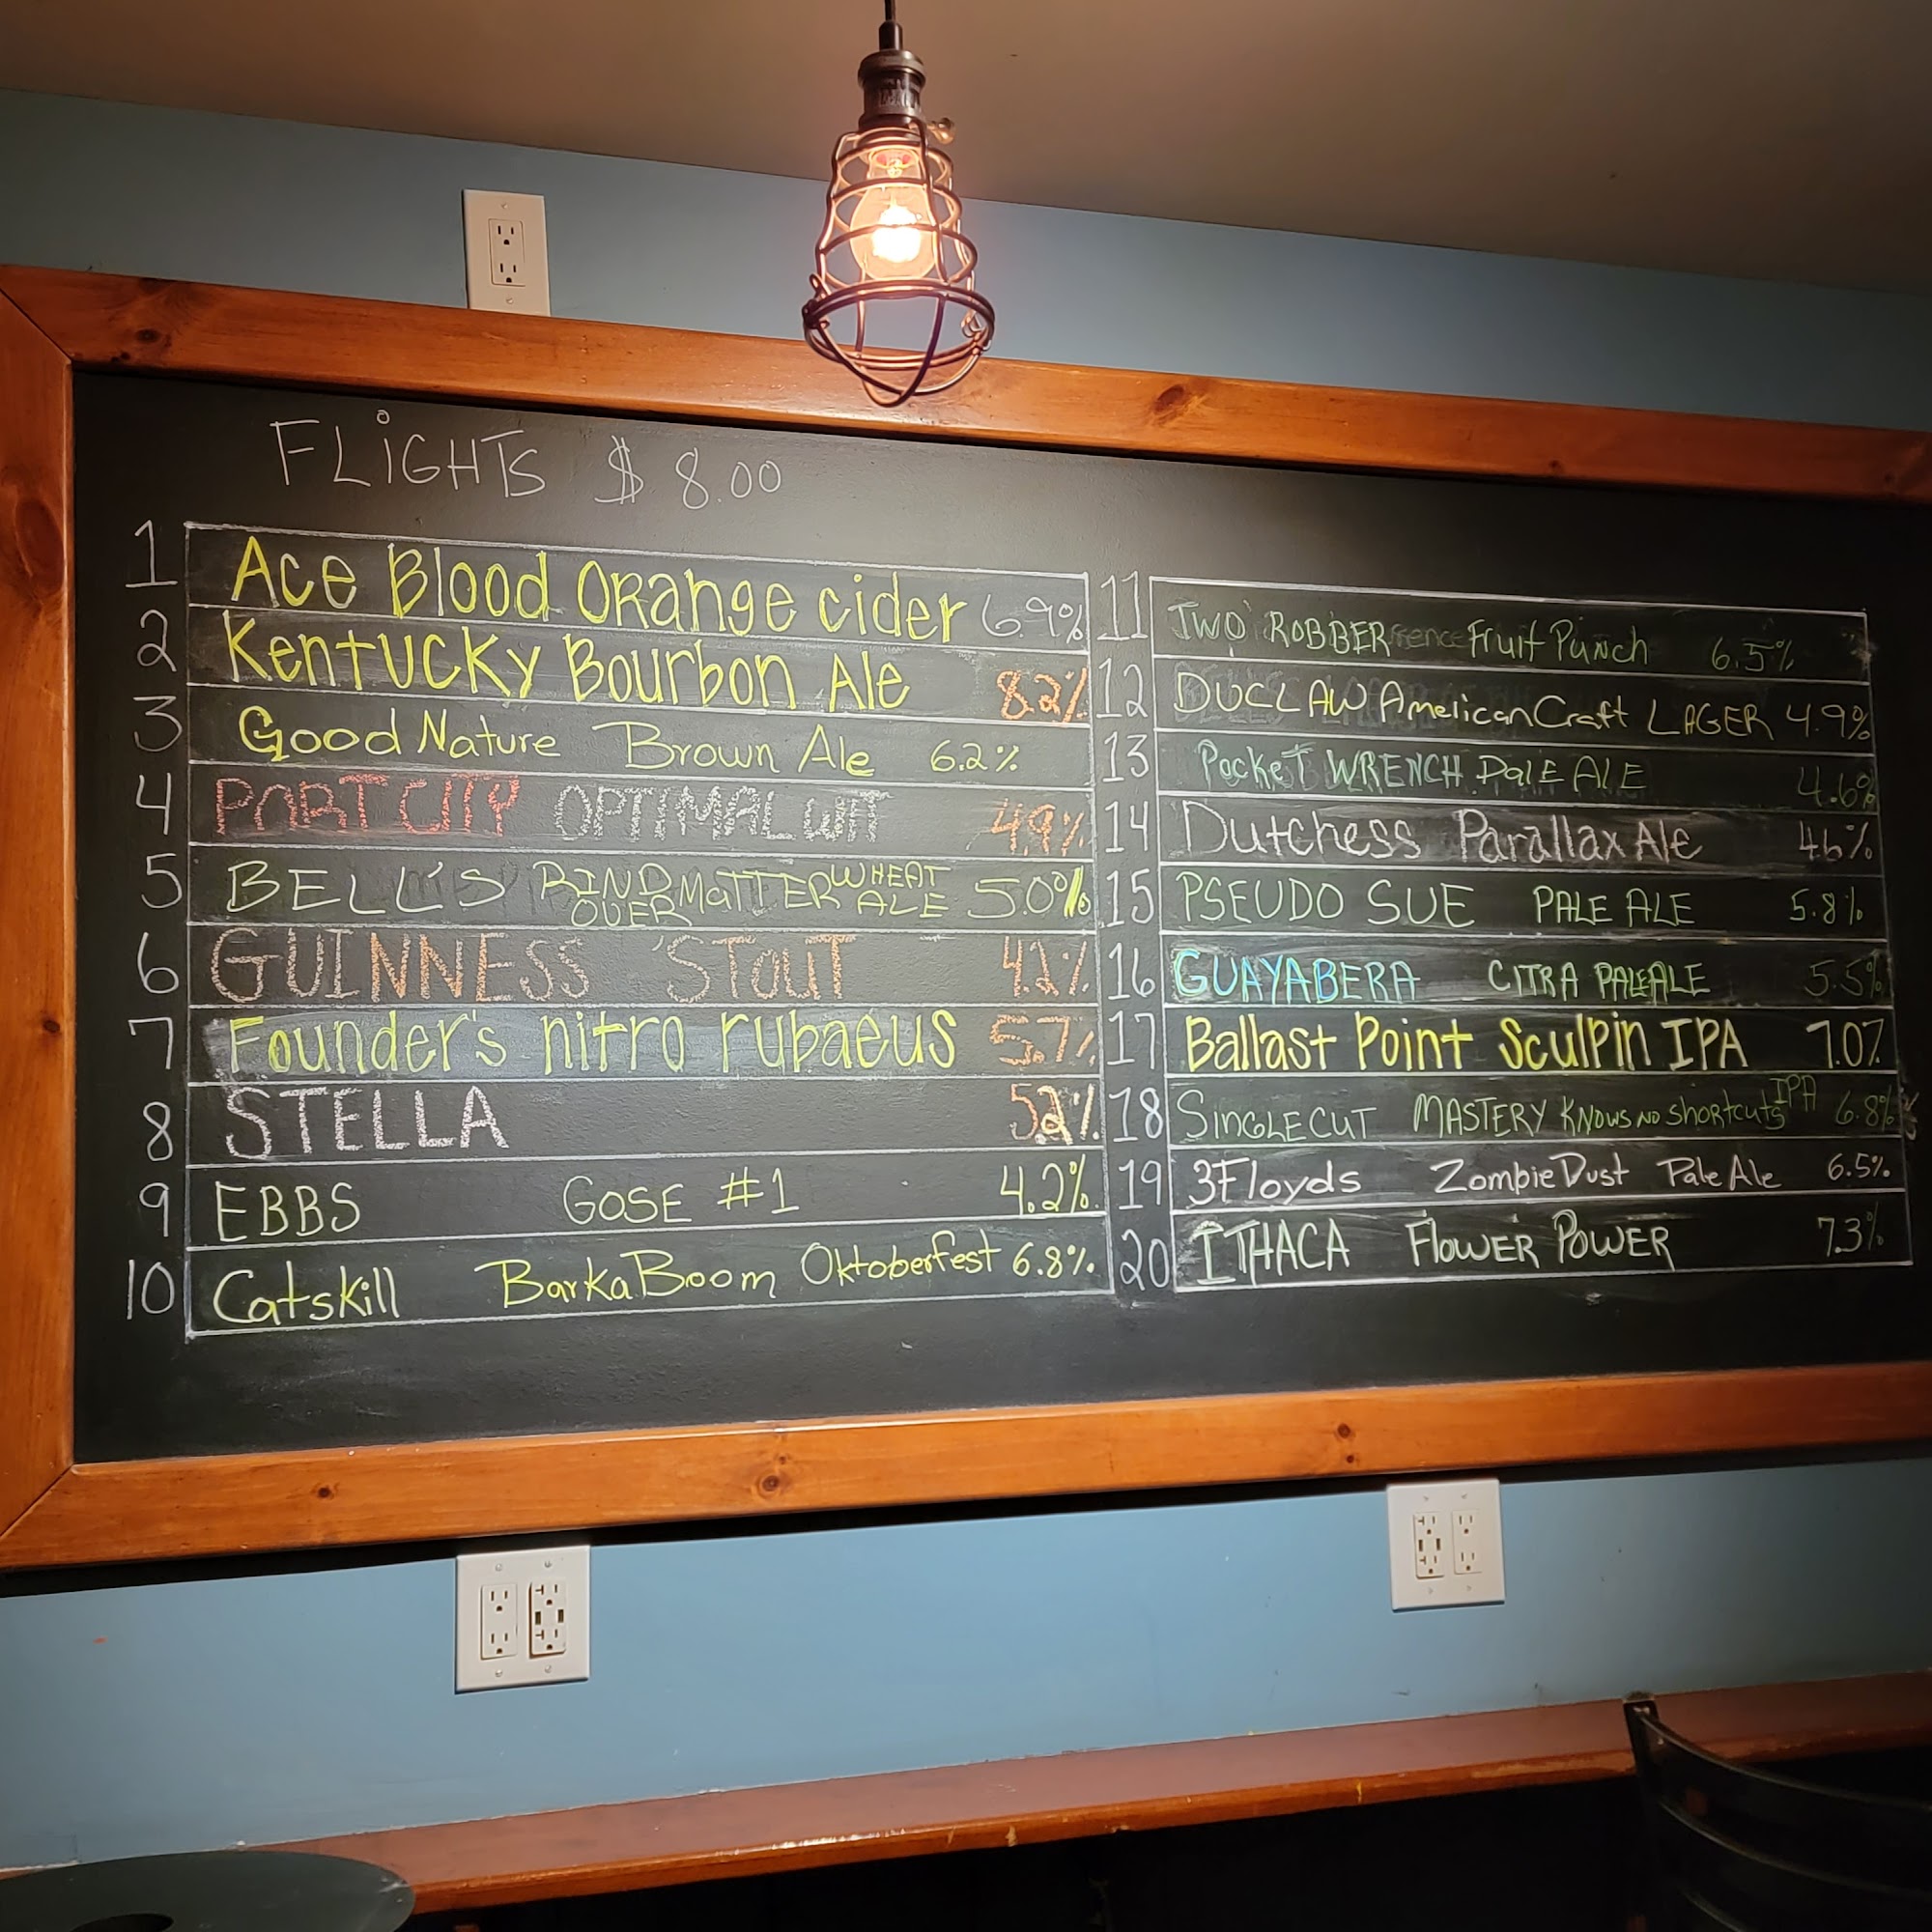 FLiGHTs $ 8.00
1 Ace Blood Orange cider 6.9%
2 Kentucky Bourbon Ale 8.2%
3 Good Nature Brown Ale 6.2%
4 PORT CITY OPTIMAL WIT 4.9%
5 BELL'S MIND OVER MATTER WHEAT ALE 5.0%
6 GUINNESS 'STOUT 4.2%
7 Founder's nitro rubaeus 5.7%
8 STELLA 5.2%
9 EBBS GOSE #1 4.2%
10 Catskill BarkaBoom Oktoberfest 6.8%
11 TWO ROBBER Fruit Punch 6.5%
12 DUCLAW American Craft LAGER 4.9%
13 Pocket WRENCH Pale ALE 4.6%
14 Dutchess Parallax Ale 46%
15 PSEUDO SUE PALE ALE 5.8%
16 GUAYABERA CITRA PALE ALE 5.5%
17 Ballast Point Sculpin IPA 7.0%
18 SINGLECUT MASTERY KNOWS NO shortcuts IPA 6.8%
19 3Floyds Zombie Dust Pale Ale 6.5%
20 ITHACA FLOWER POWER 7.3%